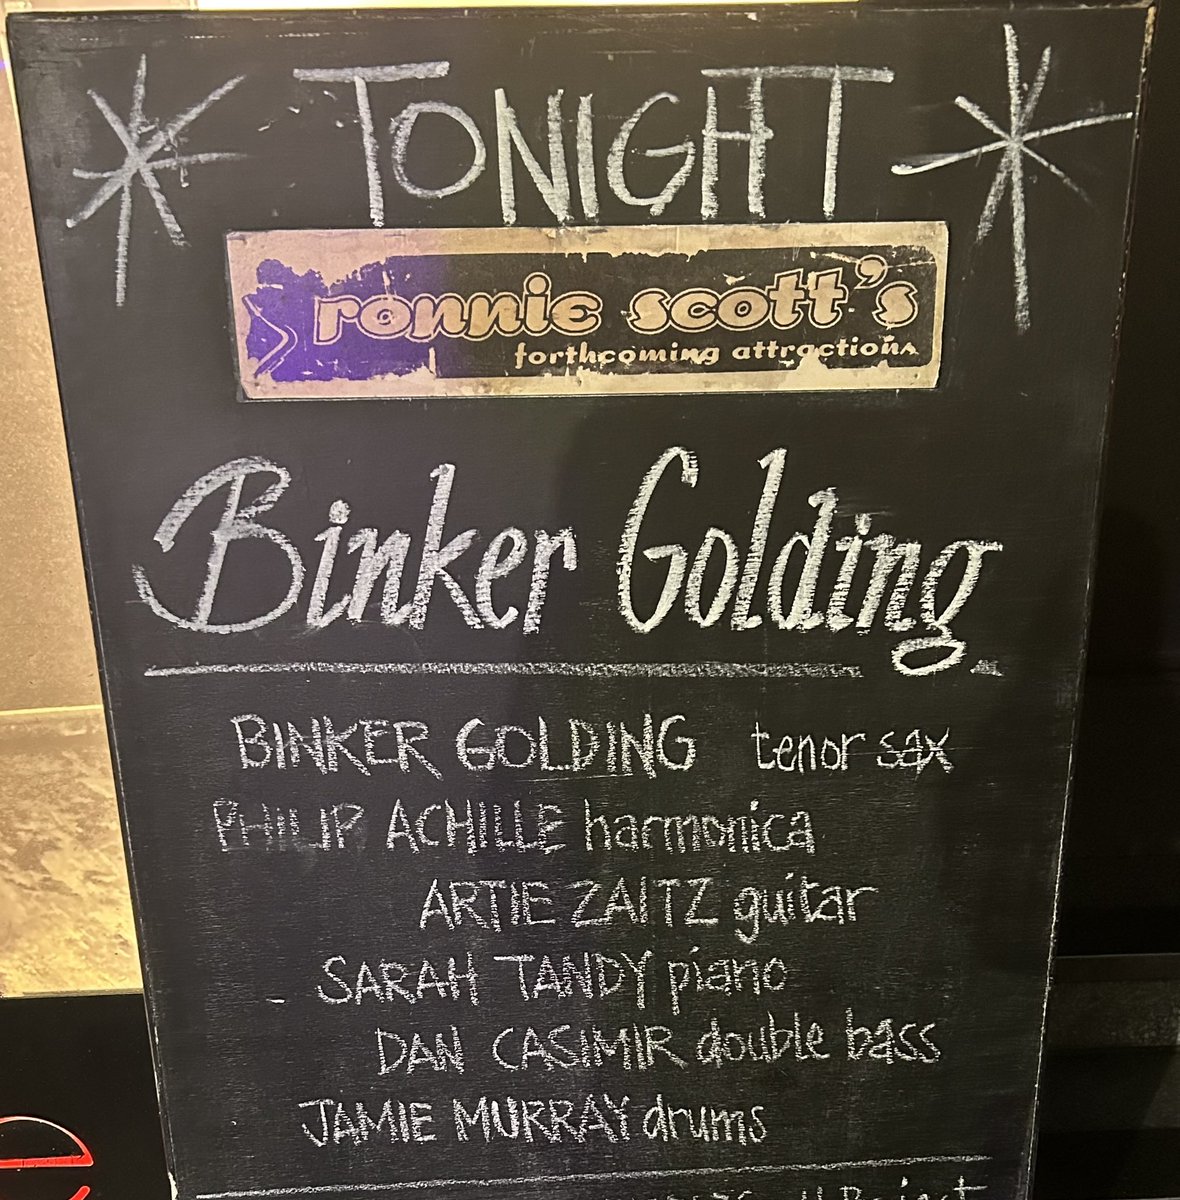 TONIGHT
ronnie scott's
forthcoming attractions
Binker Golding
BINKER GOLDING tenor sax
PHILIP ACHILLE harmonica
ARTIE ZAITZ guitar
SARAH TANDY piano
DAN CASIMIR double bass
JAMIE MURRAY drums
Project
e